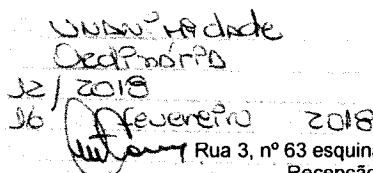 Unanimidade
Ordinária
12/2018
16 fevereiro 2018
Rua 3, nº 63 esquina
Recepção